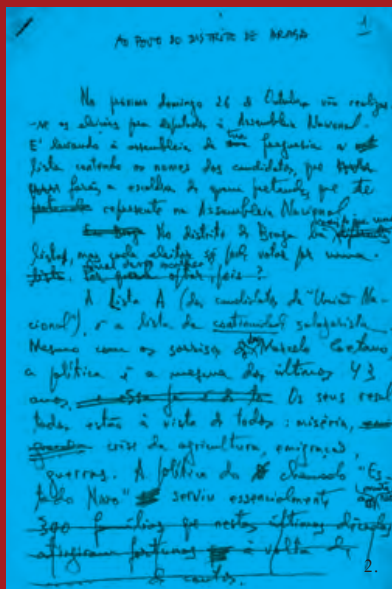 1
AO POVO DO DISTRITO DE BRAGA
No próximo domingo 26 de Outubro vão realizar
-se as eleições para deputados à Assembleia Nacional.
E' levando à assembleia de tua freguesia a
lista contendo os nomes dos candidatos, que
farás a escolha de quem pretendes que te
represente na Assembleia Nacional.
No distrito de Braga há
listas, mas cada eleitor só pode votar por uma.
Por qual optar, pois?
A Lista A (dos candidatos da "União Na-
cional"), é a lista da continuidade salazarista.
Mesmo com os sorrisos de Marcelo Caetano
a política é a mesma dos últimos 43
anos, Os seus resul
tados estão à vista de todos: miséria,
crise da agricultura, emigração,
guerras. A política do chamado "Es-
tado Novo" serviu essencialmente
300 famílias que nestas últimas décadas
atingiram fortunas à volta de
de contos.
2.